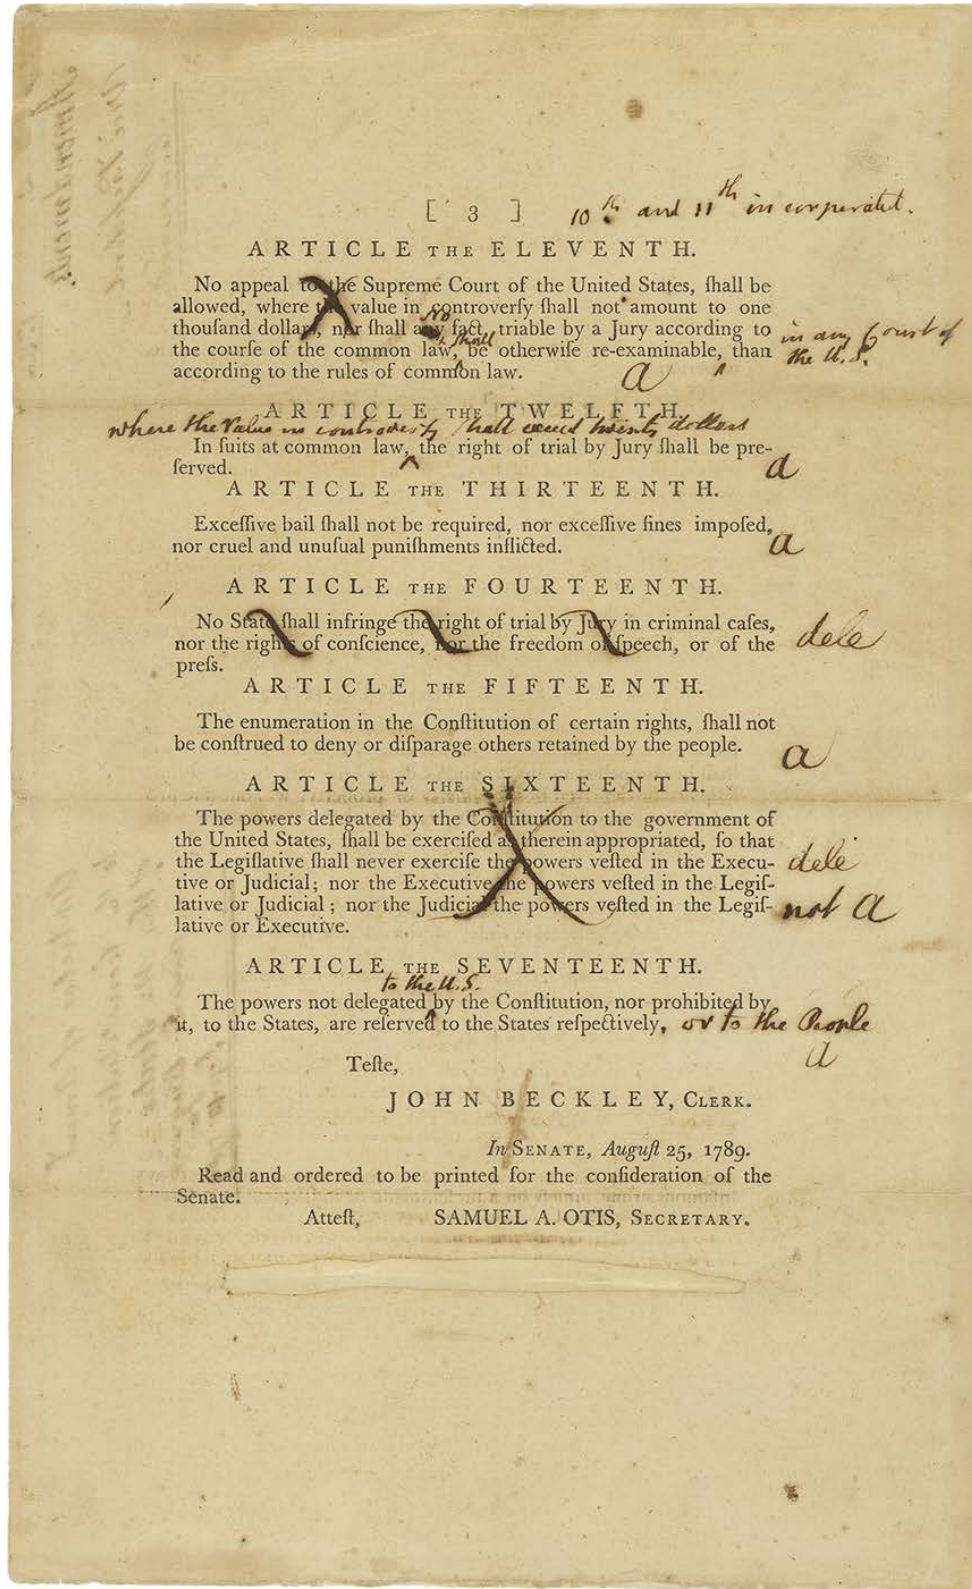 [ 3 ] 10th and 11th incorporated.
ARTICLE THE ELEVENTH.
No appeal to the Supreme Court of the United States, ſhall be
allowed, where the value in controverſy ſhall not amount to one
no
thouſand dollars, nor ſhall any fact, triable by a Jury according to in any Court of
shall
the courſe of the common law, be otherwiſe re-examinable, than the U.S.
according to the rules of common law. a
ARTICLE THE TWELFTH.
where the Value in controversy shall exceed twenty dollars
In ſuits at common law, ^ the right of trial by Jury ſhall be pre-
ſerved. a
ARTICLE THE THIRTEENTH.
Exceſſive bail ſhall not be required, nor exceſſive fines impoſed,
nor cruel and unuſual puniſhments inflicted. a
ARTICLE THE FOURTEENTH.
No State ſhall infringe the right of trial by Jury in criminal caſes,
nor the rights of conſcience, nor the freedom of ſpeech, or of the dele
preſs.
ARTICLE THE FIFTEENTH.
The enumeration in the Conſtitution of certain rights, ſhall not
be conſtrued to deny or diſparage others retained by the people. a
ARTICLE THE SIXTEENTH.
The powers delegated by the Conſtitution to the government of
the United States, ſhall be exerciſed as therein appropriated, ſo that
the Legiſlative ſhall never exerciſe the powers veſted in the Execu- dele
tive or Judicial; nor the Executive the powers veſted in the Legiſ-
lative or Judicial; nor the Judicial the powers veſted in the Legiſ- not a
lative or Executive.
ARTICLE THE SEVENTEENTH.
to the U.S.
The powers not delegated ^ by the Conſtitution, nor prohibited by
it, to the States, are reſerved to the States reſpectively, or to the People
a
Teſte,
JOHN BECKLEY, CLERK.
In SENATE, Auguſt 25, 1789.
Read and ordered to be printed for the conſideration of the
Senate.
Atteſt, SAMUEL A. OTIS, SECRETARY.